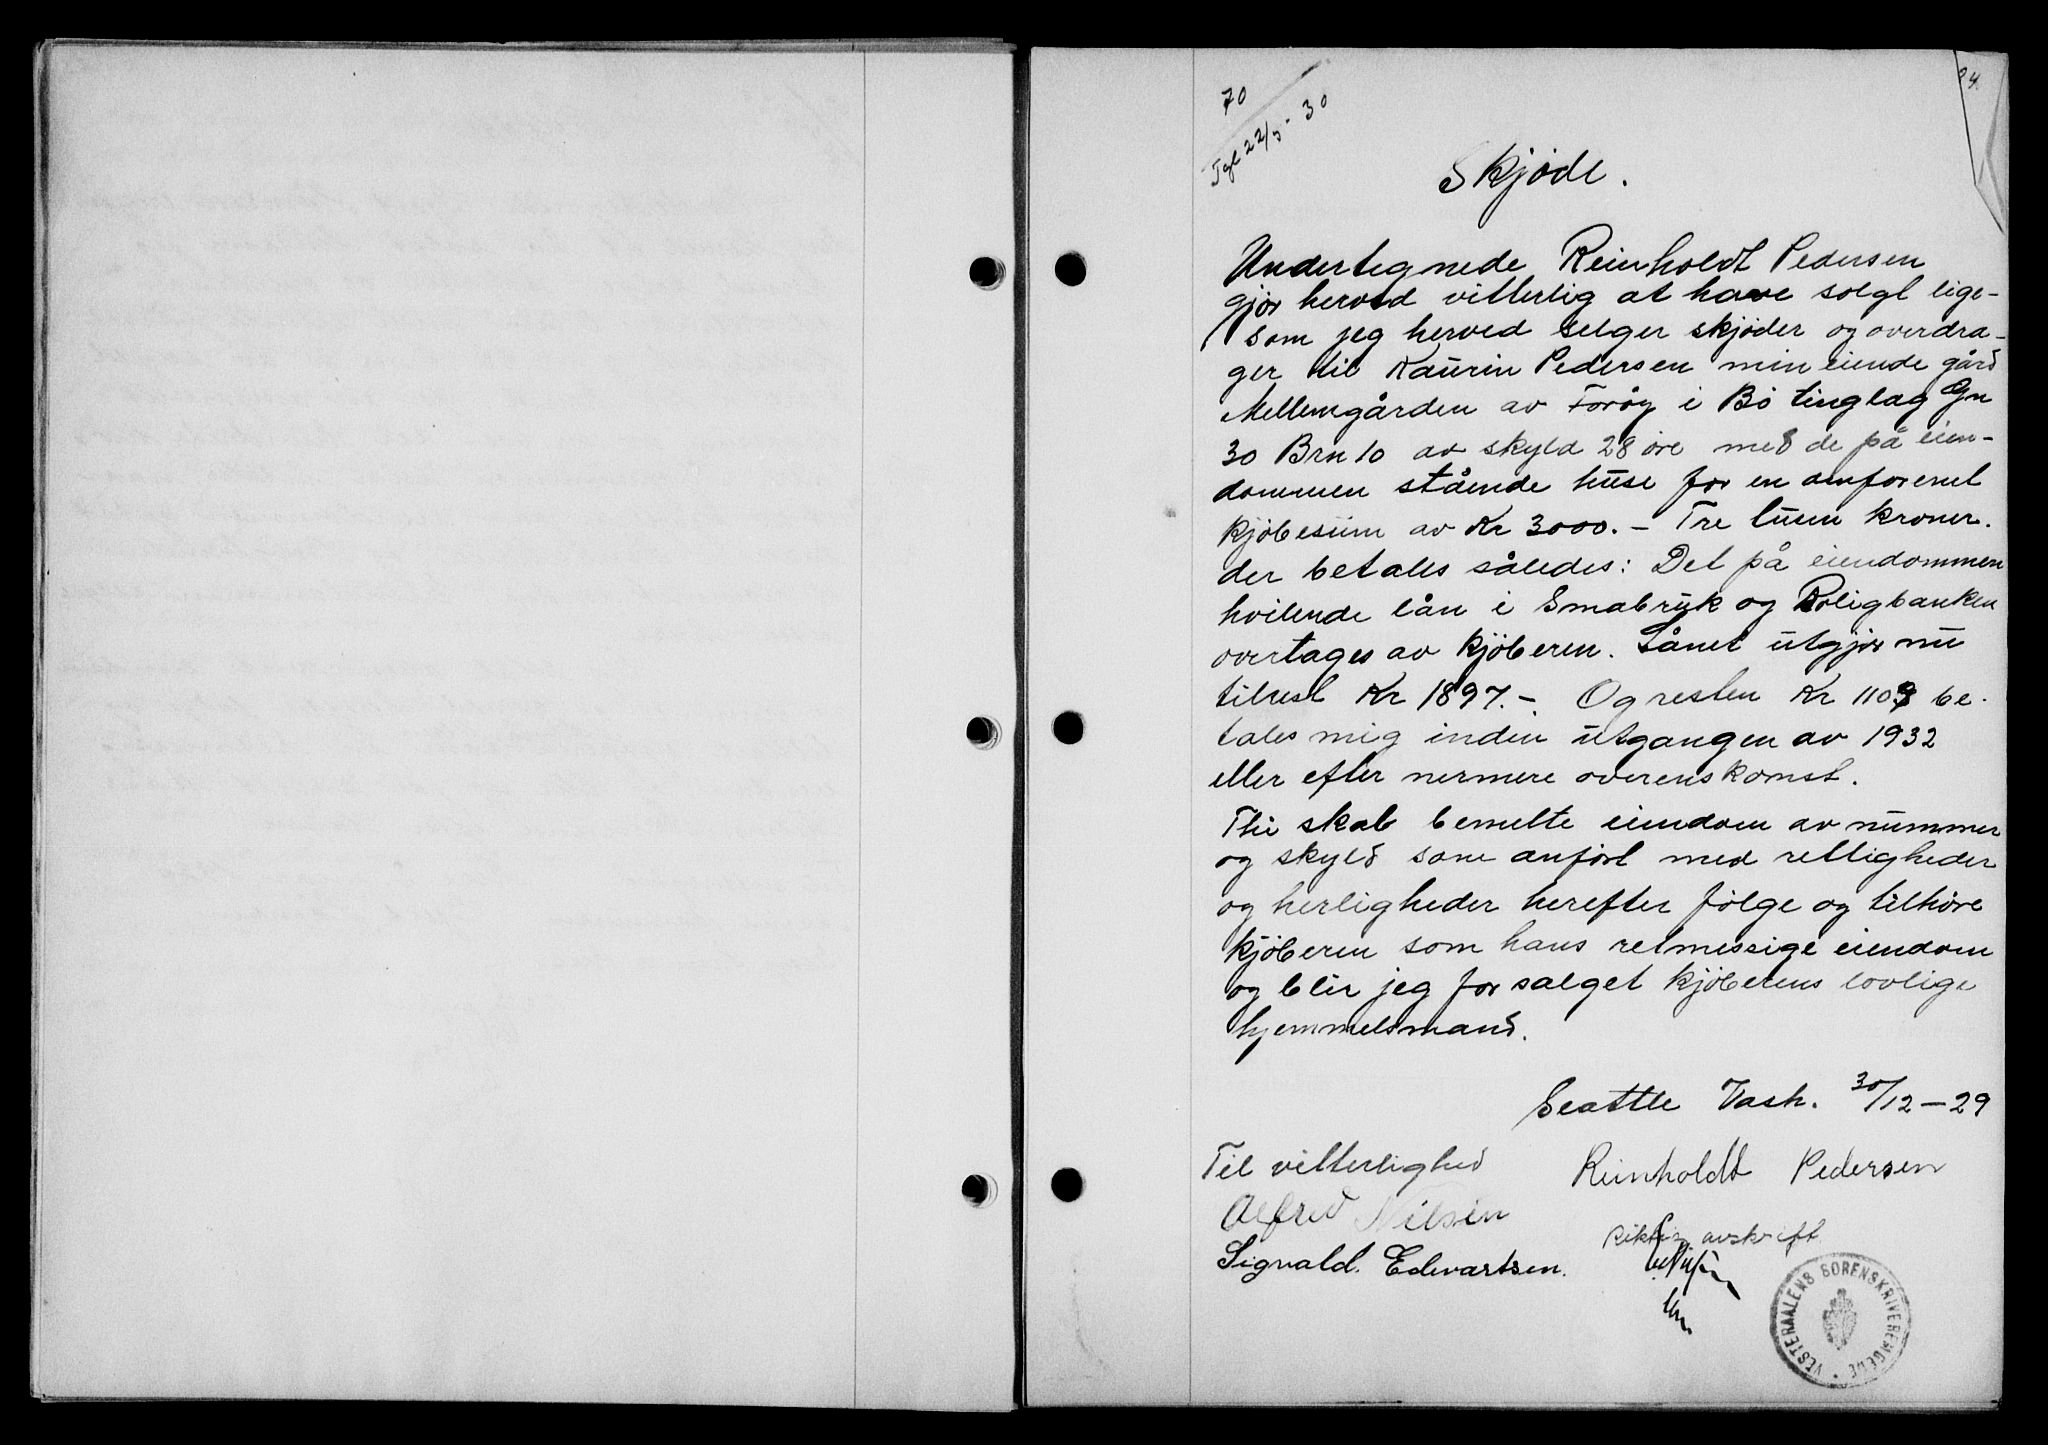 70
Tgl 22/5-30
Skjøde.
Undertegnede Reinholdt Pedersen
gjør herved vitterlig at have solgt lige-
som jeg herved selger skjøder og overdra-
ger til Kaurin Pedersen min eiende gård
Mellemgården av Forøy i Bø tinglag Gn
30 Brn 10 av skyld 28 øre med de på eien-
dommen stående huse for en omforenet
kjøbesum av Kr 3000.- Tre tusen kroner.
der betales således: Det på eiendommen
hvilende lån i Småbruk og Boligbanken
overtages av kjøberen. Lånet utgjør nu
tilrest Kr 1897.-. Og resten Kr 1103 be-
tales mig inden utgangen av 1932
eller efter nermere overenskomst.
Thi skal bemelte eiendom av nummer
og skyld som anført med rettigheder
og herligheder herefter følge og tilhøre
kjøberen som hans retmessige eiendom
og blir jeg for salget kjøberens lovlige
hjemmelsmand.
Seattle Vash. 30/12-29
Til vitterlighed Reinholdt Pedersen
Alfred Nilsen
Sigvald. Edvartsen.
Riktig avskrift
VESTERAALENS SORENSKRIVEREMBEDE